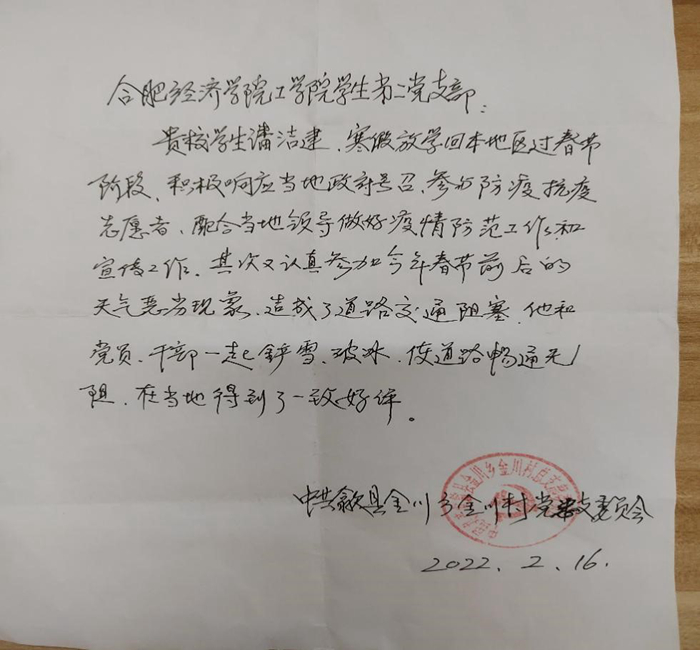 合肥经济学院工学院学生第二党支部：
贵校学生潘洁建、寒假放学回本地区过春节
阶段、积极响应当地政府号召、参加防疫抗疫
志愿者、配合当地领导做好疫情防范工作和
宣传工作。其次又认真参加今年春节前后的
天气恶劣现象、造成了道路交通阻塞、他和
党员、干部一起铲雪、破冰、使道路畅通无
阻、在当地得到了一致好评。
中共歙县金川乡金川村党支委员会
2022.2.16.